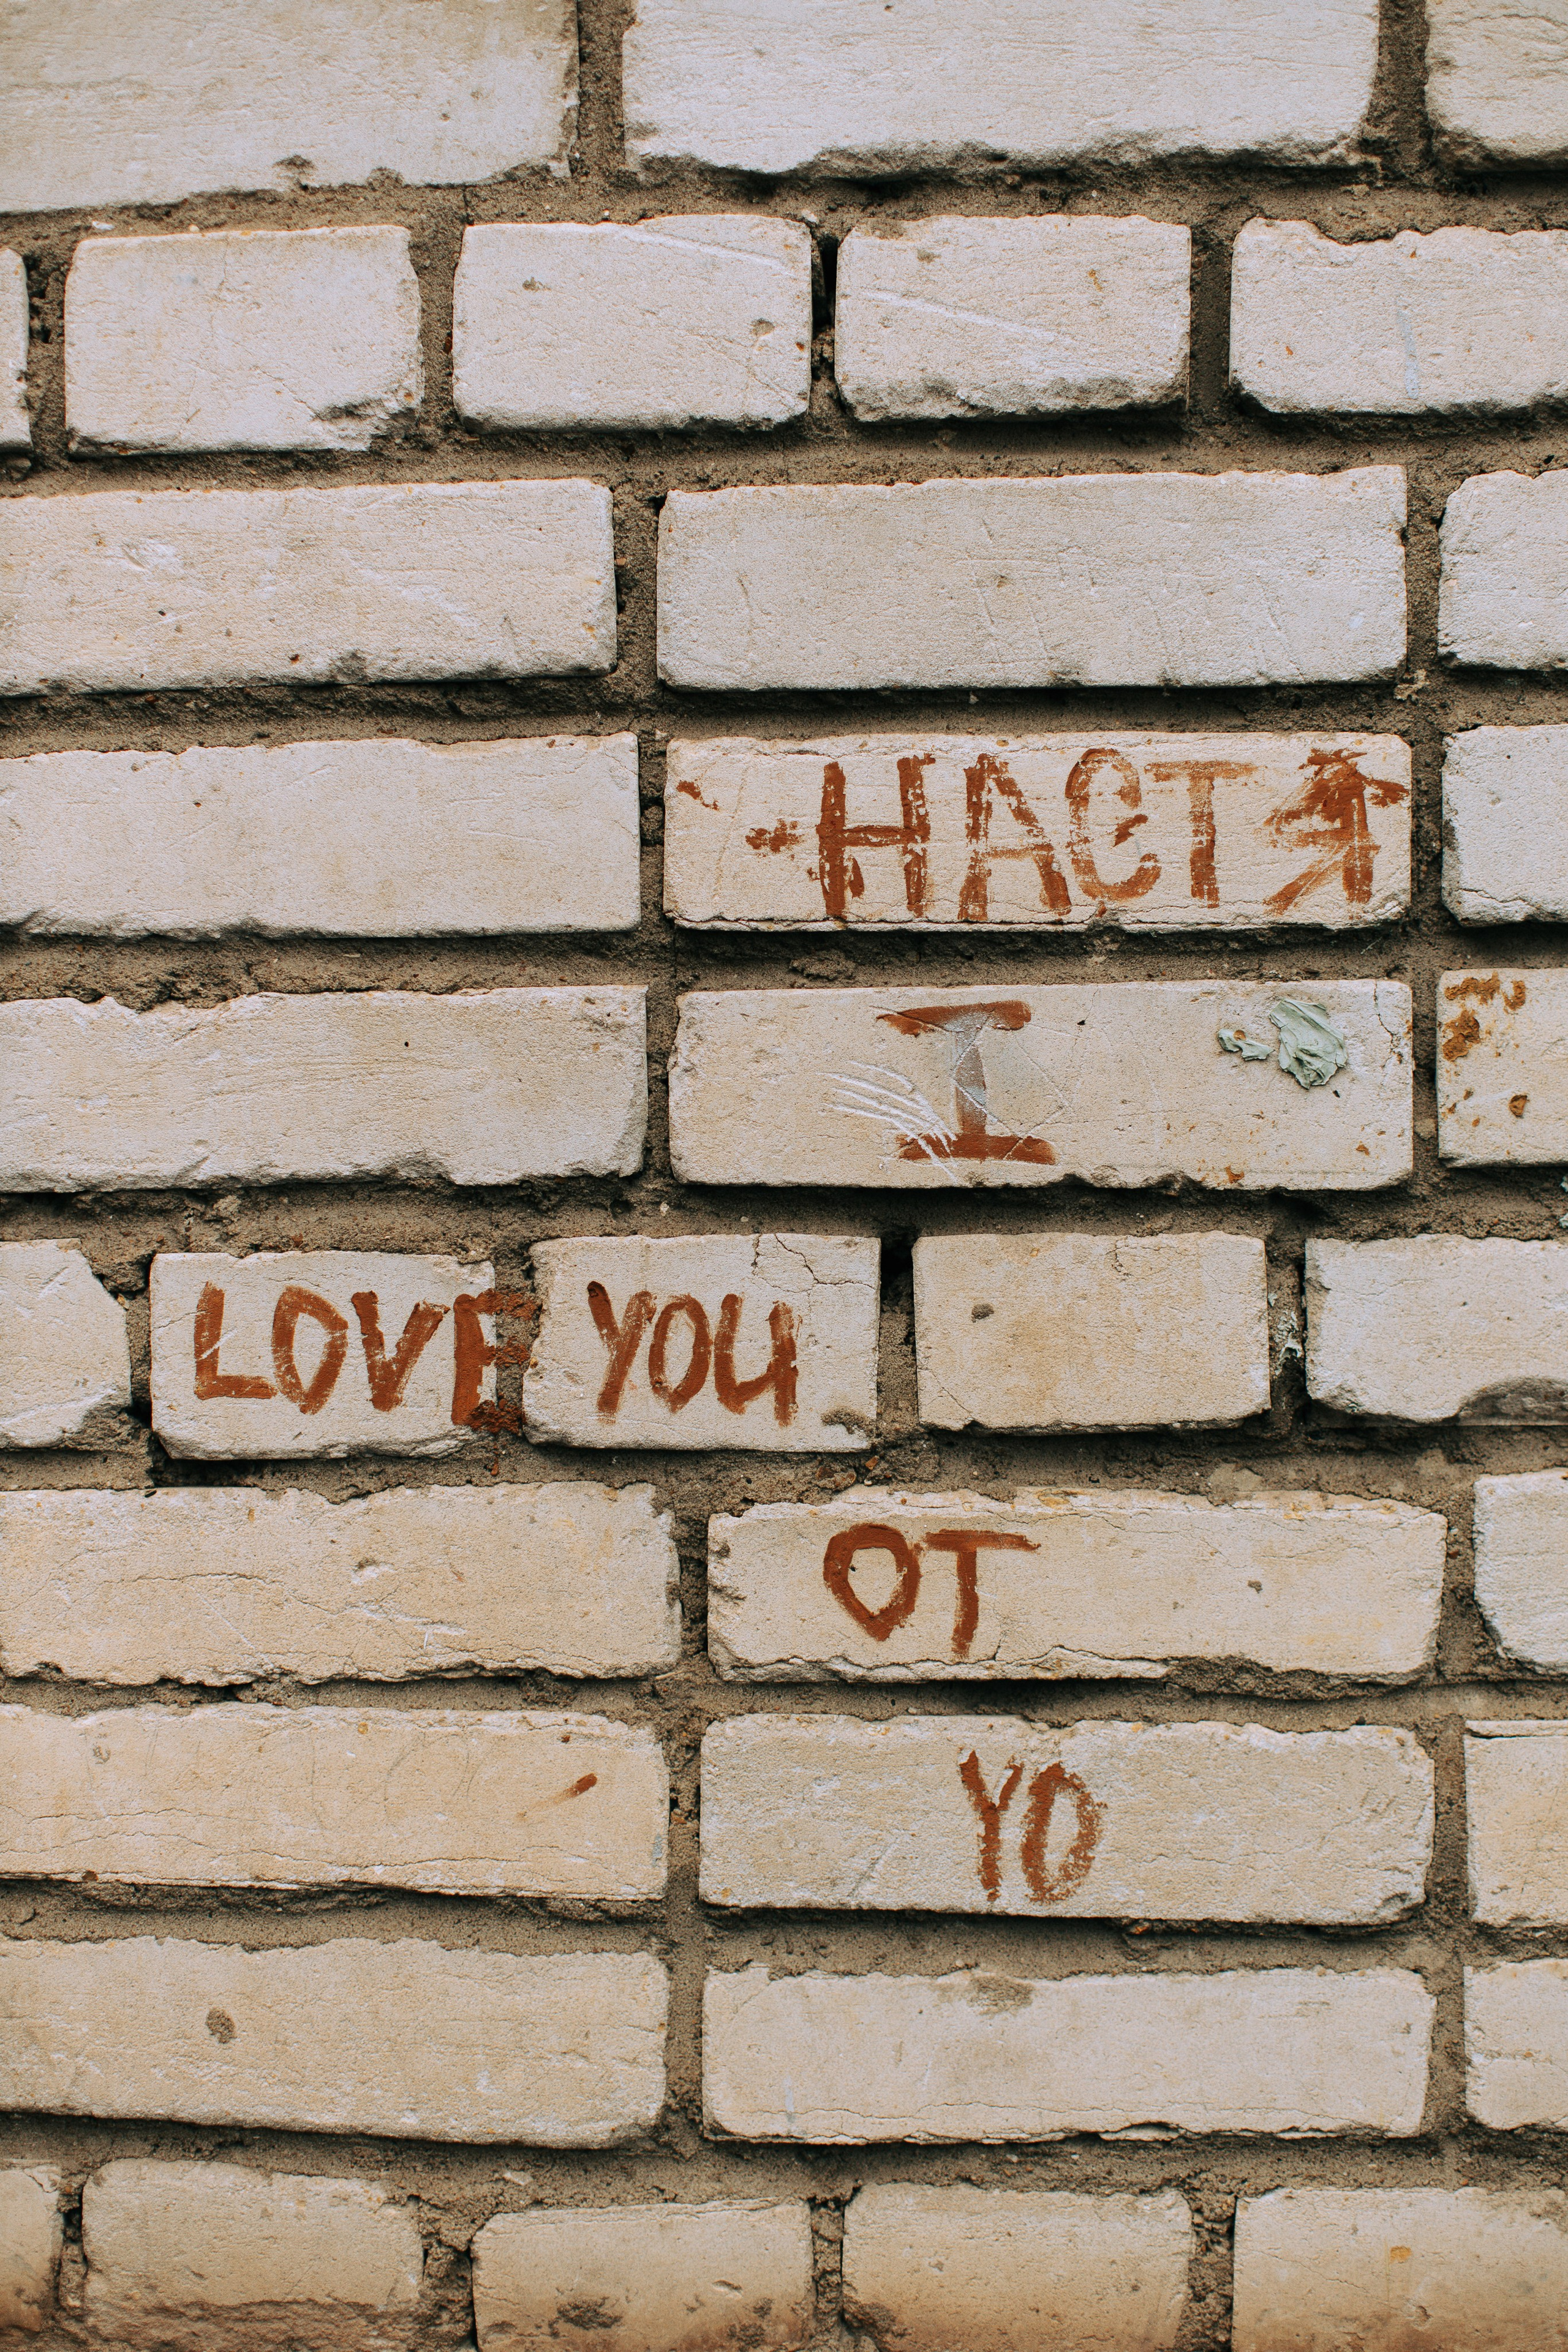 НАСТЯ
I
LOVE YOU
ОТ
YO